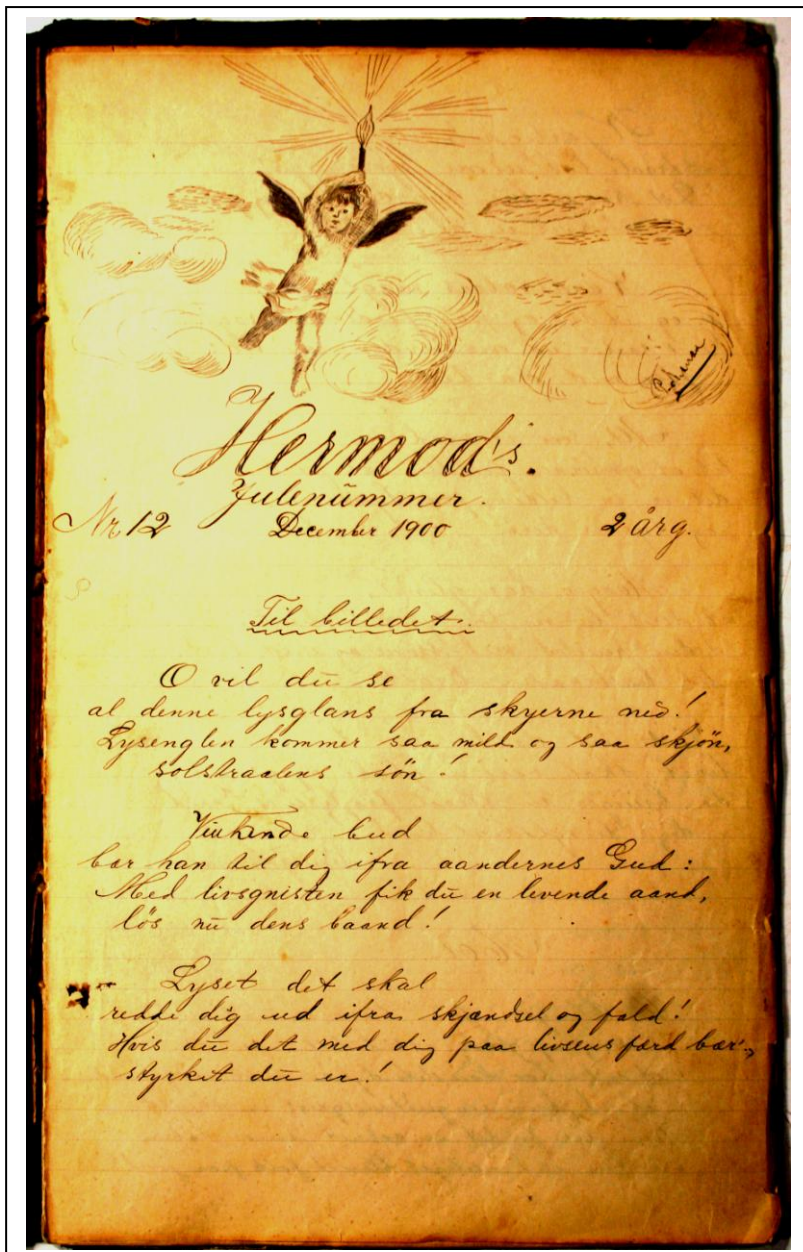 Hermod's.
Julenummer.
Nr 12 December 1900 2 årg.
Til billedet.
O vil du se
al denne lysglans fra skyerne ned!
Lysenglen kommer saa mild og saa skjön,
solstraalens sön!
Vinkende bud
bær han til dig ifra aandernes Gud:
Med livsgnisten fik du en levende aand,
lös nu dens baand!
Lyset det skal
redde dig ud ifra skjændsel og fald!
Hvis du det med dig paa livsens færd bær,
styrket du er!